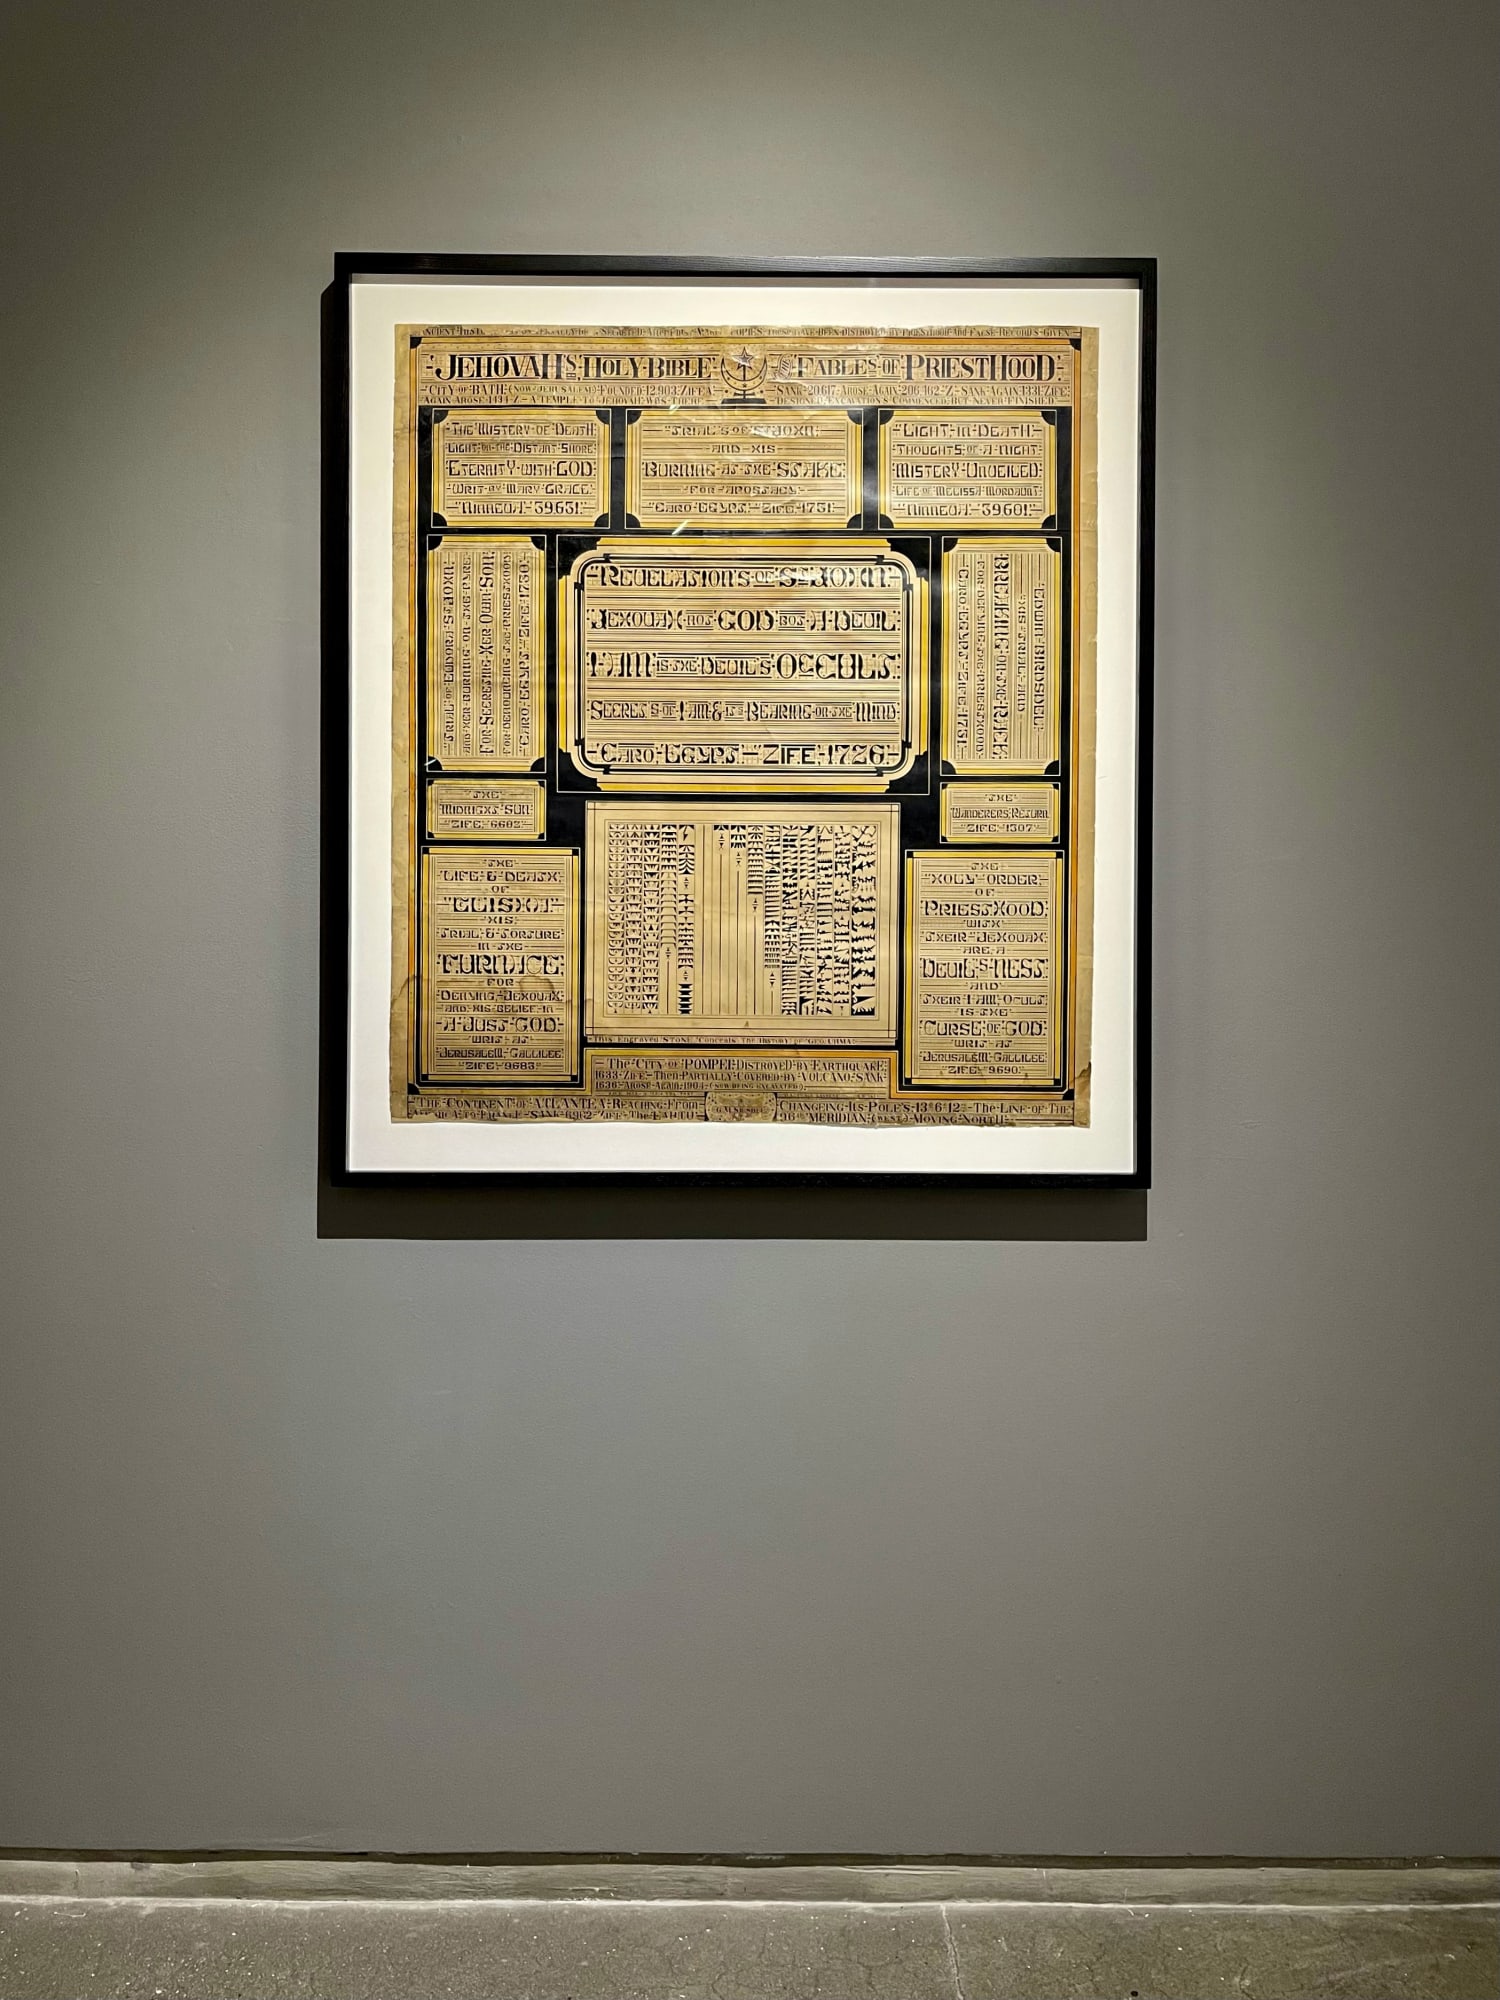 COPIES THESE HAVE BEEN DESTROYED BY PRIESTHOOD AND FALSE RECORDS GIVEN
JEHOVAH'S HOLY BIBLE FABLES OF PRIESTHOOD
CITY OF BATH (NOW JERUSALEM) FOUNDED 12.903 ZIFE SANK 20617 AROSE AGAIN 206,162 Z SANK AGAIN 1331 ZIFE
AGAIN AROSE 1434 Z A TEMPLE TO JEHOVAH WAS THERE DESIGNED EXCAVATIONS COMMENCED BUT NEVER FINISHED
THE MISTERY OF DEATH
LIGHT ON THE DISTANT SHORE
ETERNITY WITH GOD
WRIT BY MARY GRACE
39.631
TRIALS OF ST JOHN
AND HIS
BURNING AT THE STAKE
FOR APOSTACY
CARO EGYPT ZIFE 1731
LIGHT IN DEATH
THOUGHTS OF A NIGHT
MISTERY UNVEILED
LIFE OF MELISSA MORDAUNT
39601
TRIAL OF EUDORA ST JOHN
AND HER BURNING ON THE PYRE
FOR SECRETING HER OWN SON
FOR DENOUNCING THE PRIESTHOOD
CARO EGYPT ZIFE 1730
REVELATIONS OF ST JOHN
JEHOVAH NOT GOD BOT A DEVIL
I AM IS THE DEVIL'S OCCULT
SECRETS OF I AM & ITS BEARING ON THE MIND
CARO EGYPT ZIFE 1726
EDWIN BIRDSDELL
HIS TRIAL AND
BREAKING ON THE RACK
FOR DEFYING THE PRIESTHOOD
CARO EGYPT ZIFE 1731
THE
MIDNIGHT SUN
ZIFE 6602
THE
WANDERERS RETURN
ZIFE 1307
THE
LIFE & DEATH
OF
ELISHA
HIS
TRIAL & TORTURE
IN THE
FURNACE
FOR
DENYING JEHOVAH
AND HIS BELIEF IN
A JUST GOD
WRIT AT
JERUSALEM GALLILEE
ZIFE 9683
THE
HOLY ORDER
OF
PRIESTHOOD
WITH
THEIR JEHOVAH
ARE A
DEVIL'S NEST
AND
THEIR I AM OCULT
IS THE
CURSE OF GOD
WRIT AT
JERUSALEM GALLILEE
ZIFE 9690
THIS ENGRAVED STONE CONCEALS THE HISTORY OF
THE CITY OF POMPEI DESTROYED BY EARTHQUAKE
1633 ZIFE THEN PARTIALLY COVERED BY VOLCANO SANK
1636 AROSE AGAIN 1904 (NOW BEING EXCAVATED)
THE CONTINENT OF ATLANTEA REACHING FROM CHANGEING ITS POLES 13 6 12 THE LINE OF THE
SANK 6962 ZIFE THE EARTH 96TH MERIDIAN (WEST) MOVING NORTH